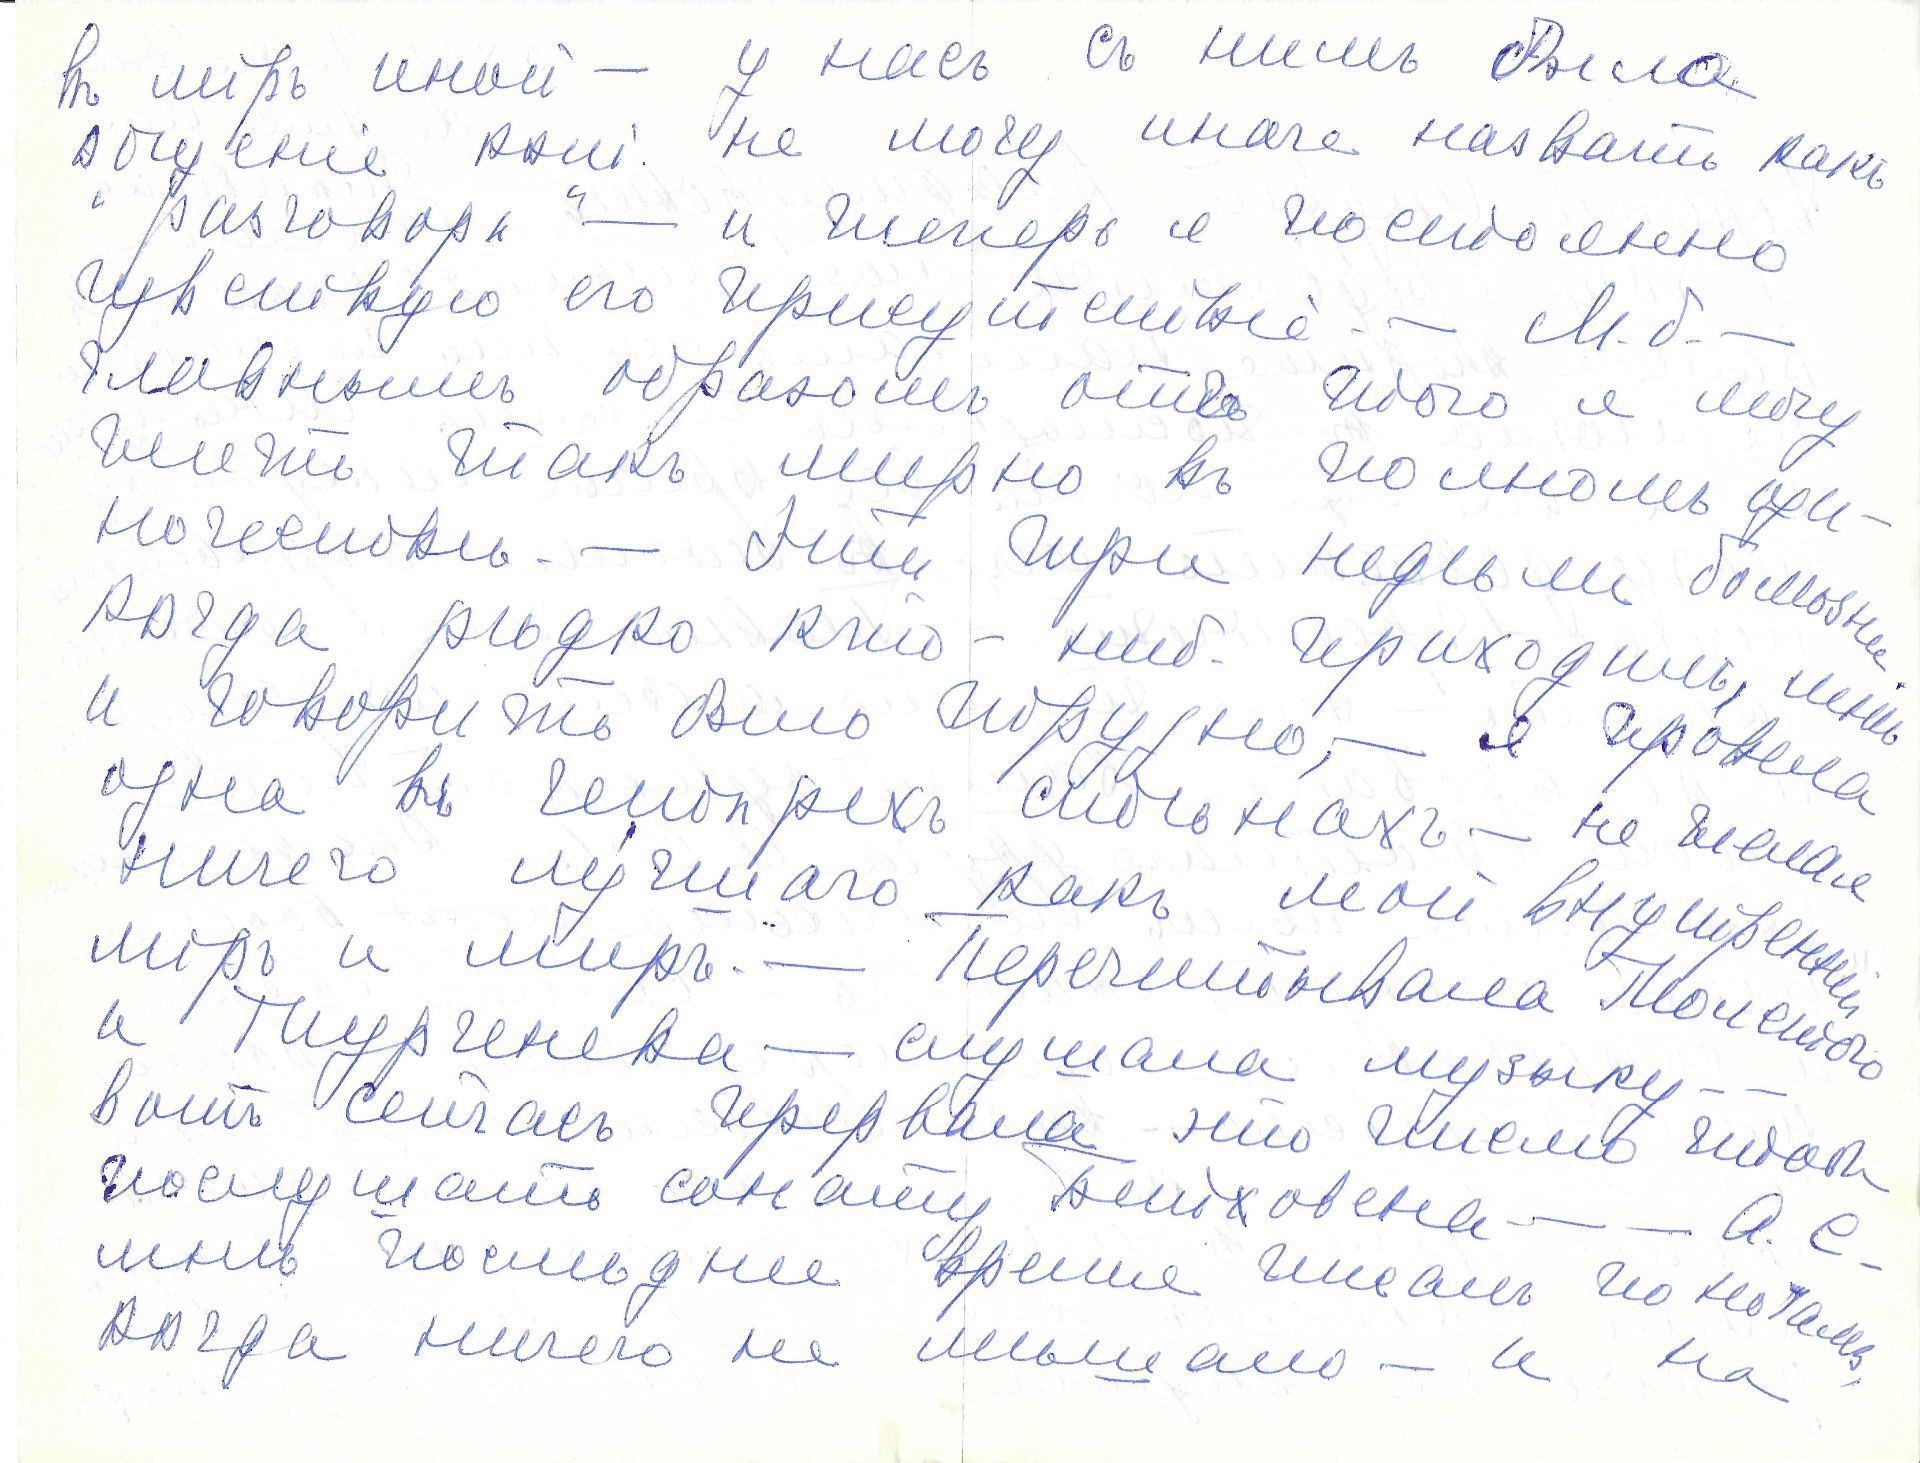 въ мiръ иной — у насъ съ нимъ было
общенiе кот. не могу иначе назвать какъ
"разговоръ" — и теперь я постоянно
чувствую его присутствiе. — М.б. —
главнымъ образомъ отъ этого я могу
жить такъ мирно въ полномъ оди-
ночествѣ. — Эти три недѣли болѣзни
когда рѣдко кто-ниб. приходилъ, мнѣ
и говорить было трудно, — я провела
одна въ четырехъ стѣнахъ — не желая
ничего лучшаго какъ мой внутреннiй
мiръ и миръ. — Перечитывала Толстого
и Тургенева — слушала музыку —
вотъ сейчасъ прервала это письмо чтобы
послушать сонату Бетховена — — А. С.
мнѣ послѣднее время писалъ по ночамъ,
когда ничего не мѣшало — и на